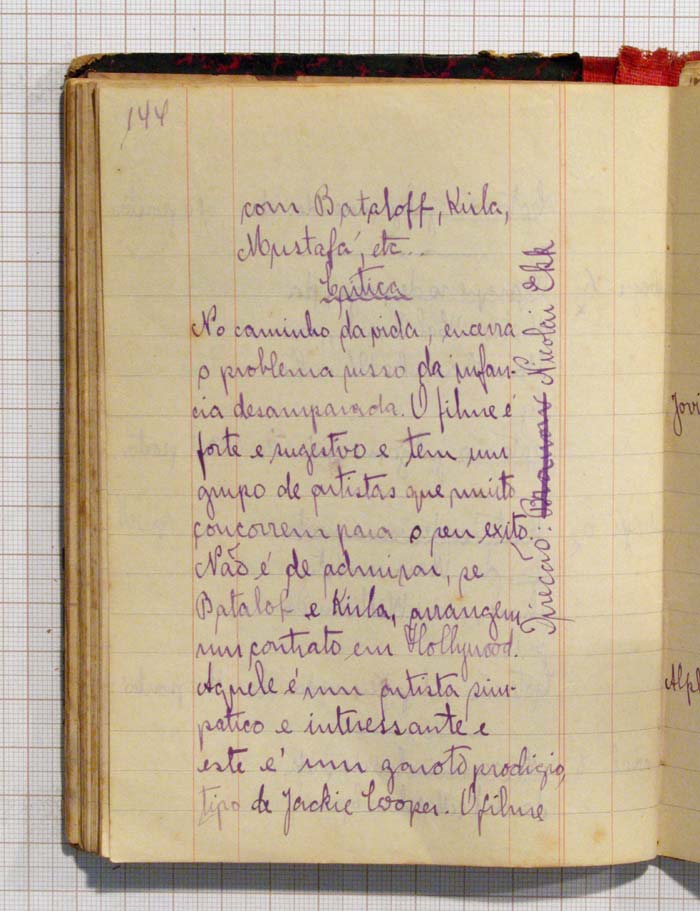 144
com Bataloff, Kirla,
Mustafá, etc.
Crítica
No caminho da vida, encerra
o problema russo da infan-
cia desamparada. O filme é
forte e sugestivo e tem um
grupo de artistas que muito
concorrem para o seu exito.
Não é de admirar, se
Batalof e Kirla, arrangem
um contrato em Hollywood.
Aquele é um artista sim-
patico e interessante e
este é um garoto prodigio,
tipo de Jackie Cooper. O filme
Direcão: Nicolai Ekk
Jovi
Alph